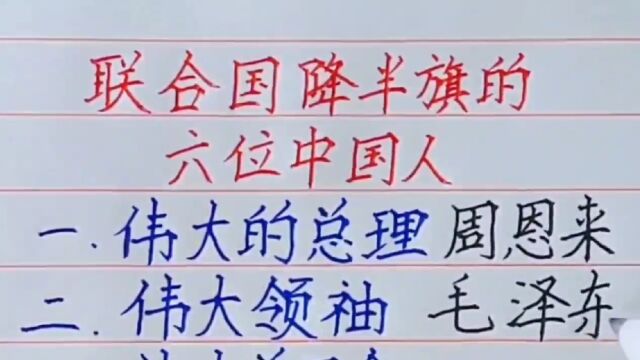 联合国降半旗的
六位中国人
一.伟大的总理 周恩来
二.伟大领袖 毛泽东